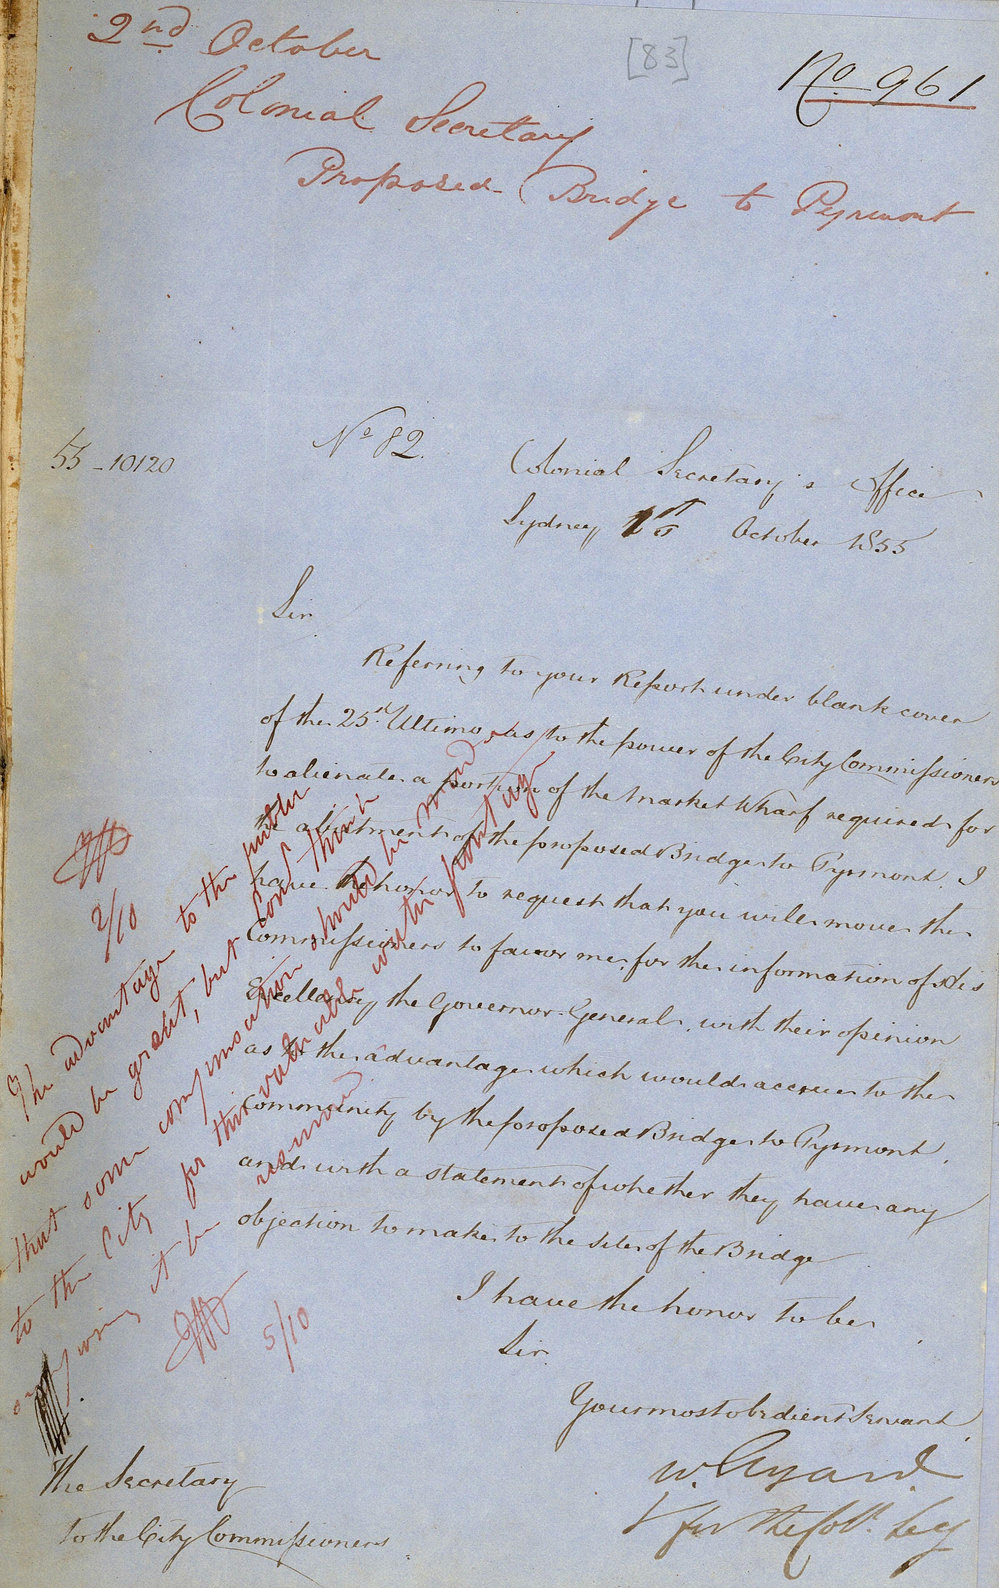 2nd October
[83]
No 961
Colonial Secretary
Proposed Bridge to Pyrmont
No 82.
55-10120
Colonial Secretary's Office
Sydney 1st October 1855
Sir
Referring to your Report under blank cover
of the 25th Ultimo as to the power of the City Commissioners
to alienate a portion of the Market Wharf required for
the abutment of the proposed Bridge to Pyrmont, I
have the honor to request that you will move the
Commissioners to favor me, for the information of His
Excellency the Governor General, with their opinion
as to the advantage which would accrue to the
Community by the proposed Bridge to Pyrmont,
and with a statement of whether they have any
objection to make to the site of the Bridge
I have the honor to be,
Sir
Your most obedient Servant,
for the Coll. Secy
The Secretary
to the City Commissioners.
2/10
The advantage to the public
would be great, but Com think
that some compensation should be made
to the City for this valuable water frontage
it be resumed
5/10